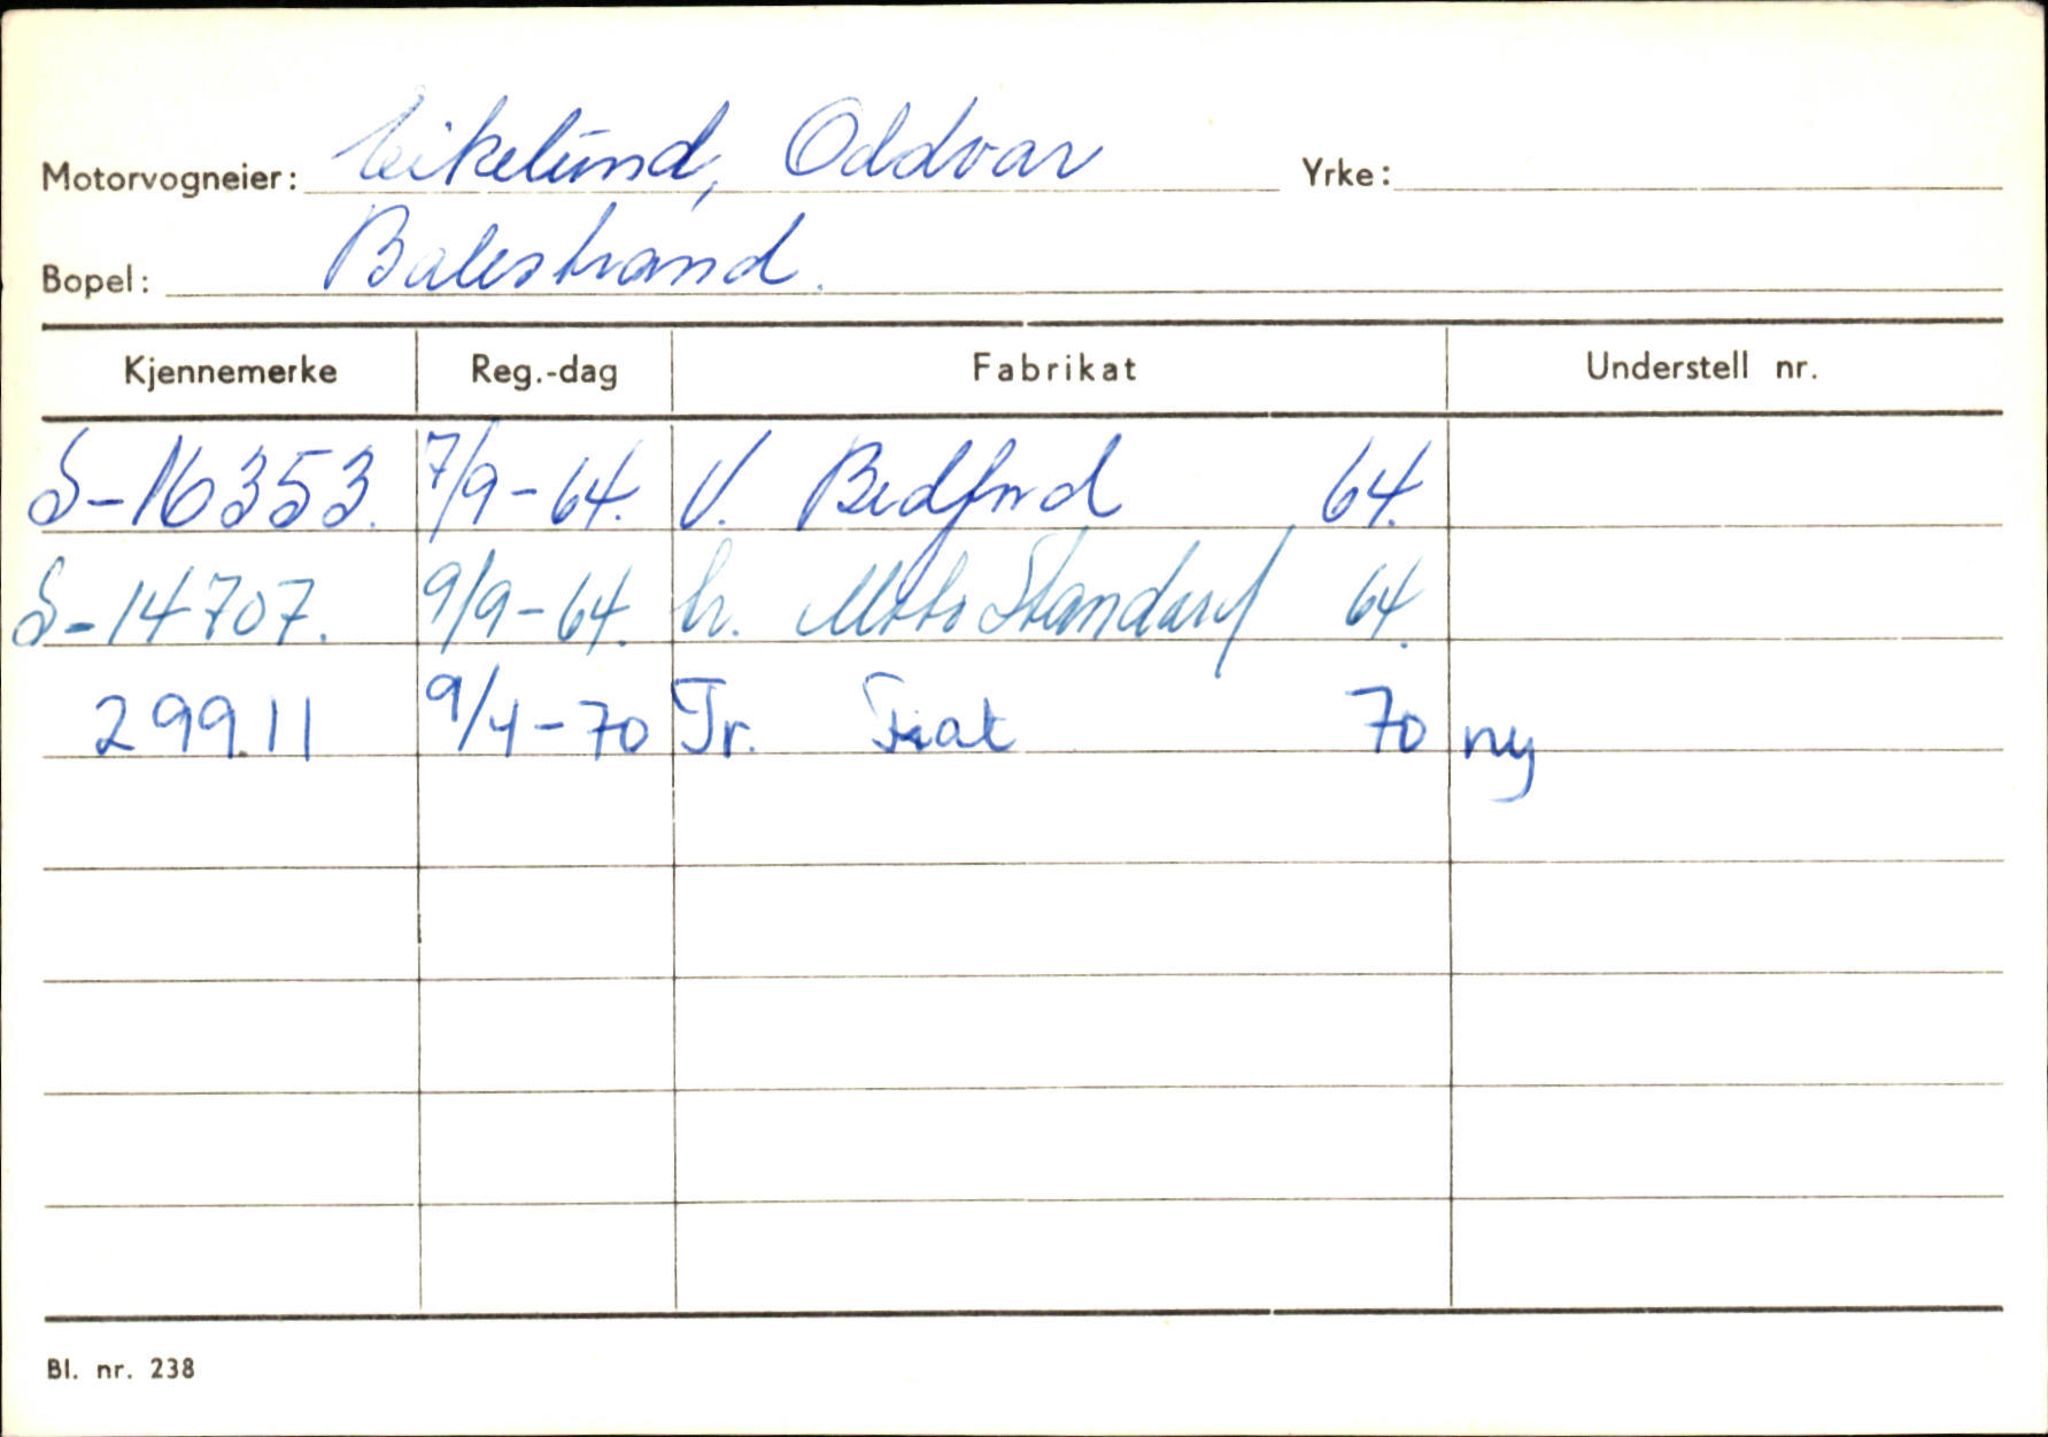 Motorvogneier: Eikelund, Oddvar Yrke:
Bopel: Balestrand.
Kjennemerke Reg.-dag Fabrikat Understell nr.
S-16353. 7/9-64. V. Bedford 64.
S-14707. 9/9-64. Moto Standard 64.
299.11 9/4-70 Tr. Fiat 70 ny
Bl. nr. 238